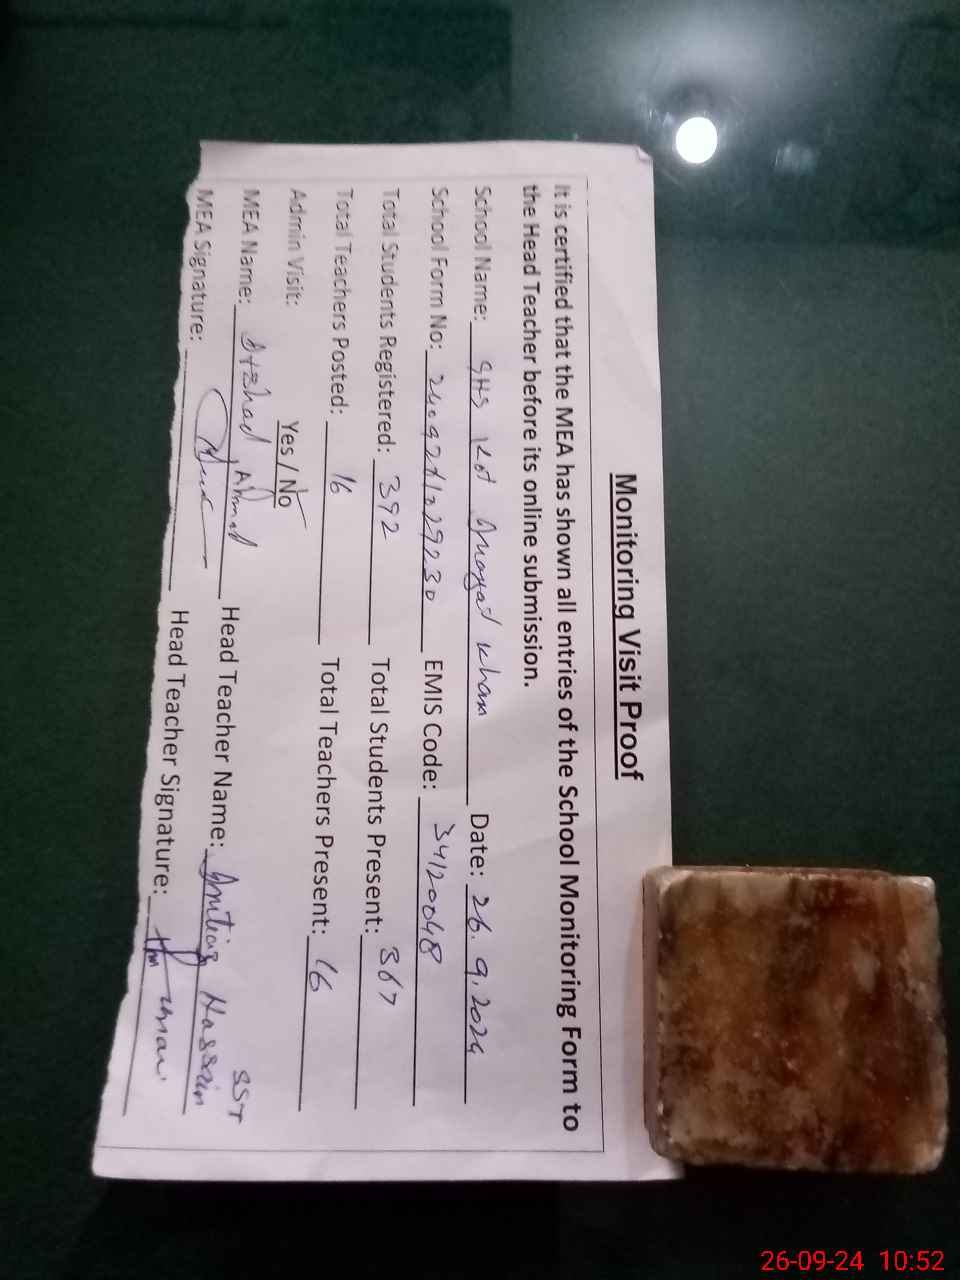 Monitoring Visit Proof
It is certified that the MEA has shown all entries of the School Monitoring Form to
the Head Teacher before its online submission.
School Name: GHS Kot Khan Date: 26.9.2024
School Form No: EMIS Code: 34120048
Total Students Registered: 392 Total Students Present: 367
Total Teachers Posted: 16 Total Teachers Present: 16
Admin Visit: Yes / No
SST
MEA Name: Ahmad Head Teacher Name: Hassain
MEA Signature: Head Teacher Signature:
26-09-24 10:52